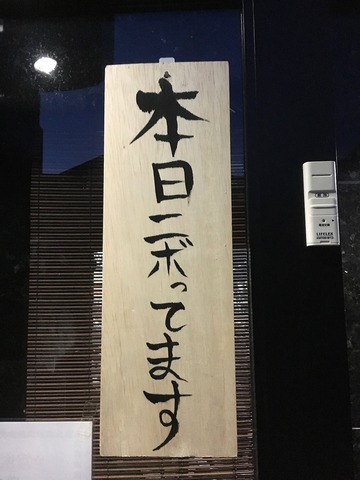 本日ニボってます